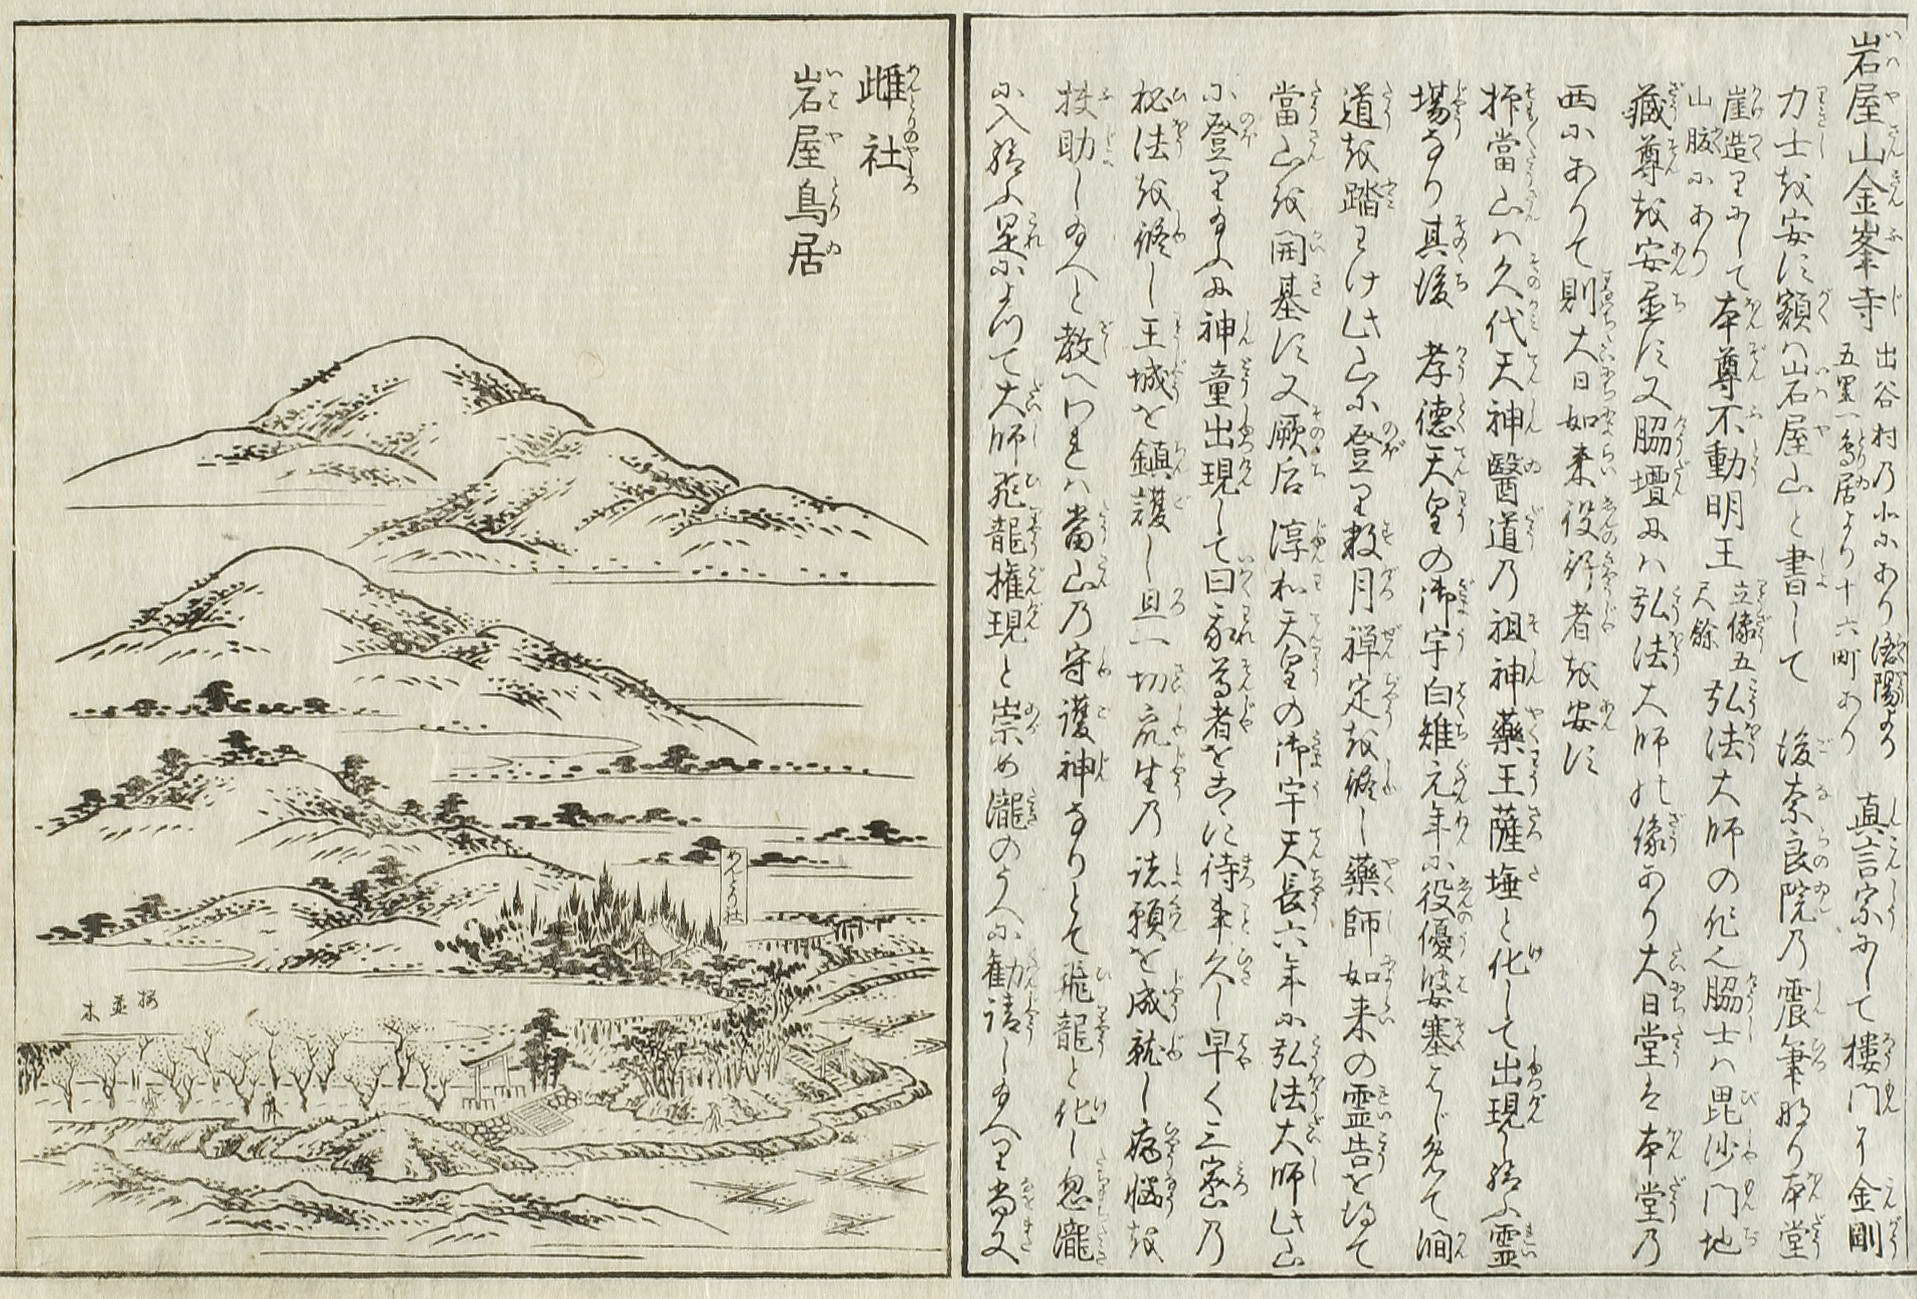 岩屋山金峯寺 出谷村乃北にあり洛陽より 真言宗にして樓門に金剛
五里一鳥居より十六町あり
力士を安す額は岩屋山と書して 後奈良院乃震筆なり本堂
崖造りにして本尊不動明王 立像五 弘法大師の作也脇士は毘沙門地
山腹にあり 尺餘
藏尊を安置す又脇壇には弘法大師の像あり大日堂は本堂乃
西にありて則大日如来役行者を安す
抑當山は久代天神醫道乃祖神藥王薩埵と化して出現し給ふ霊
場なり其後 孝德天皇の御宇白雉元年に役優婆塞はじめて洞
道を踏わけ此山に登り数月禅定を修し藥師如来の霊告を得て
當山を開基す又厥后 淳和天皇の御宇天長六年に弘法大師此山
に登り給ふに神童出現して曰我尊者をこゝに待事久し早く三密乃
秘法を修し王城を鎮護し且一切衆生乃諸願を成就し病悩を
扶助し給へと教へわれは當山乃守護神なりとて飛龍と化し忽瀧
に入給ふ是によつて大師飛龍権現と崇め瀧のうへに勧請し給へり尚又
雌社
岩屋鳥居
めんどり社
桜並木